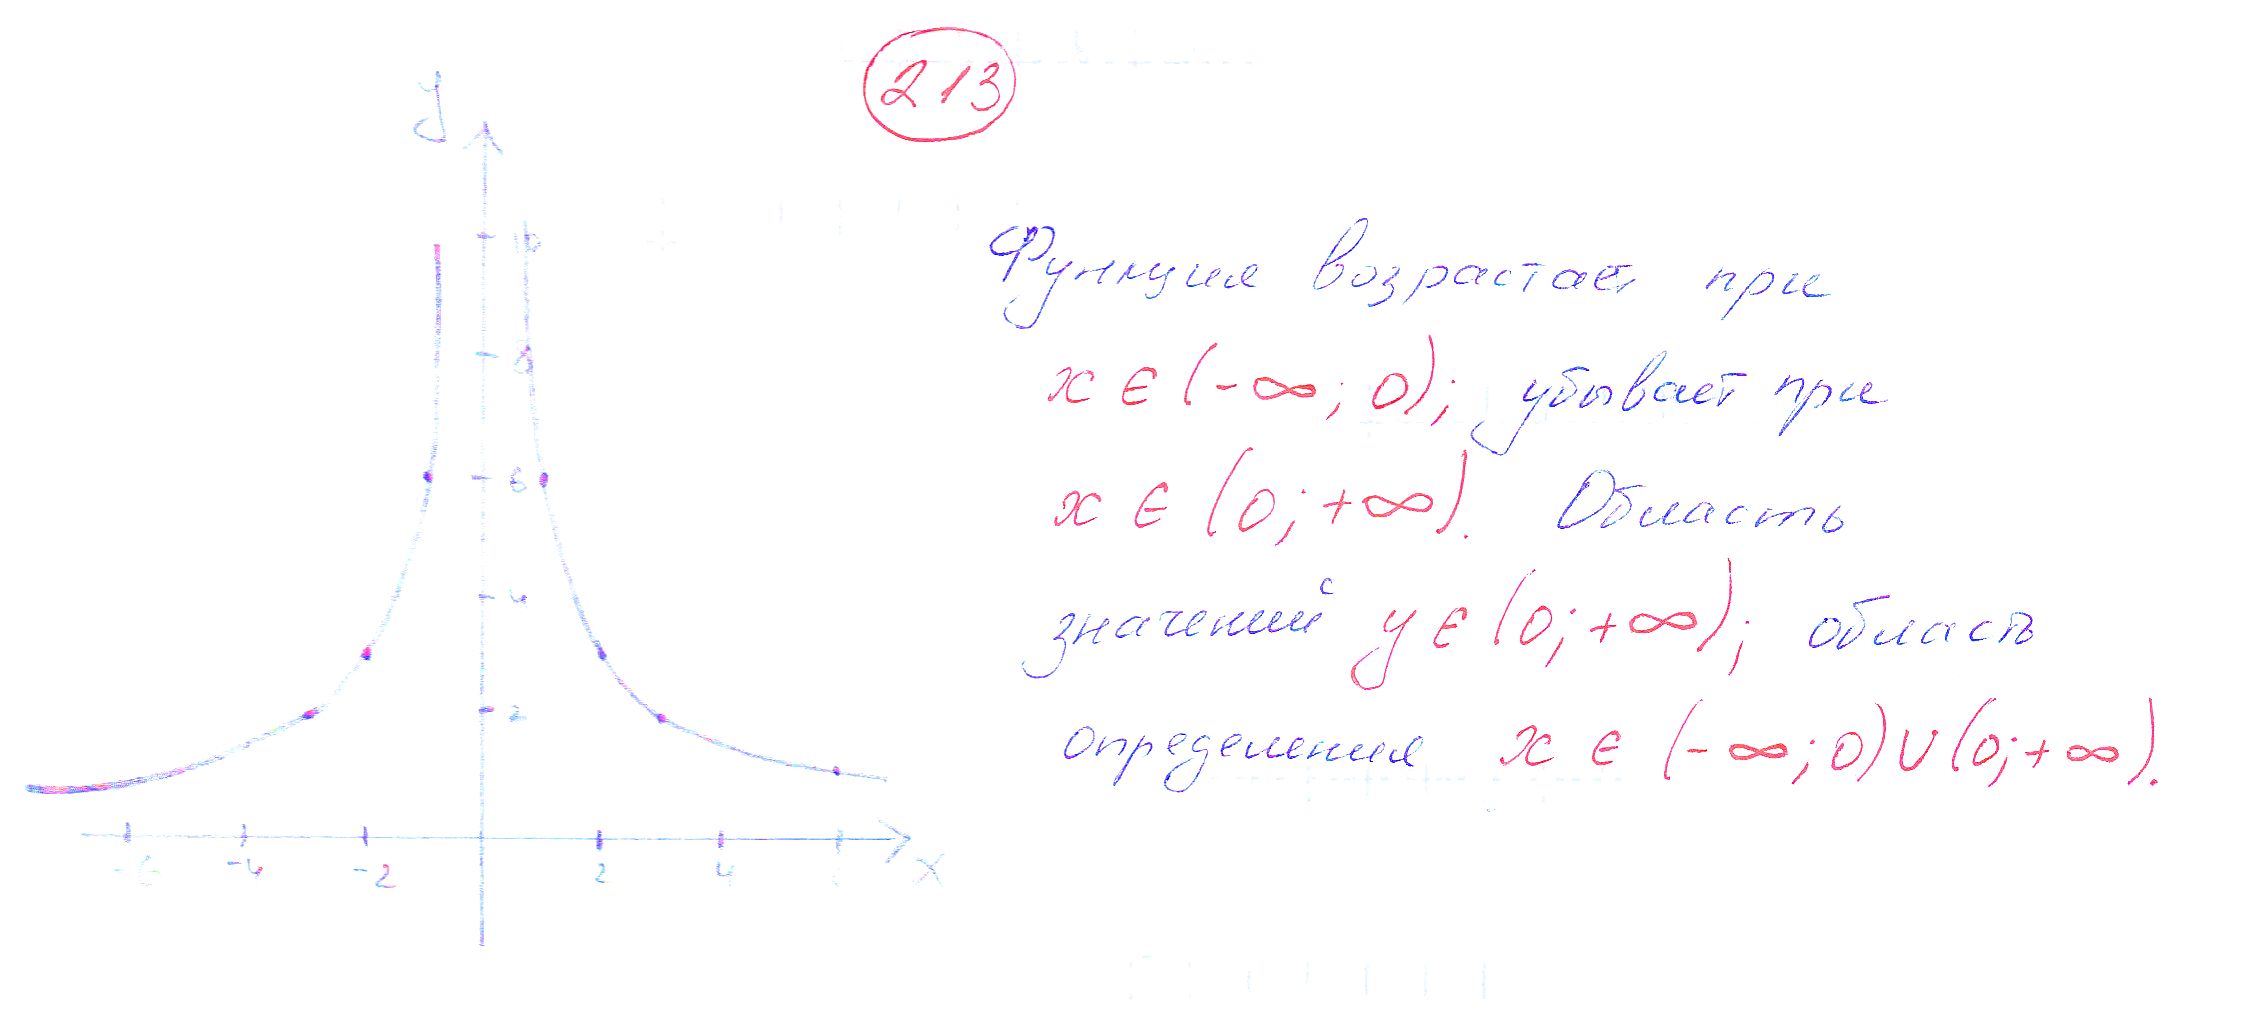 213
y
10
8
6
4
2
-6 -4 -2 2 4 x
Функция возрастает при
x ∈ (-∞; 0); убывает при
x ∈ (0; +∞). Область
значений y ∈ (0; +∞); область
определения x ∈ (-∞; 0) ∪ (0; +∞).